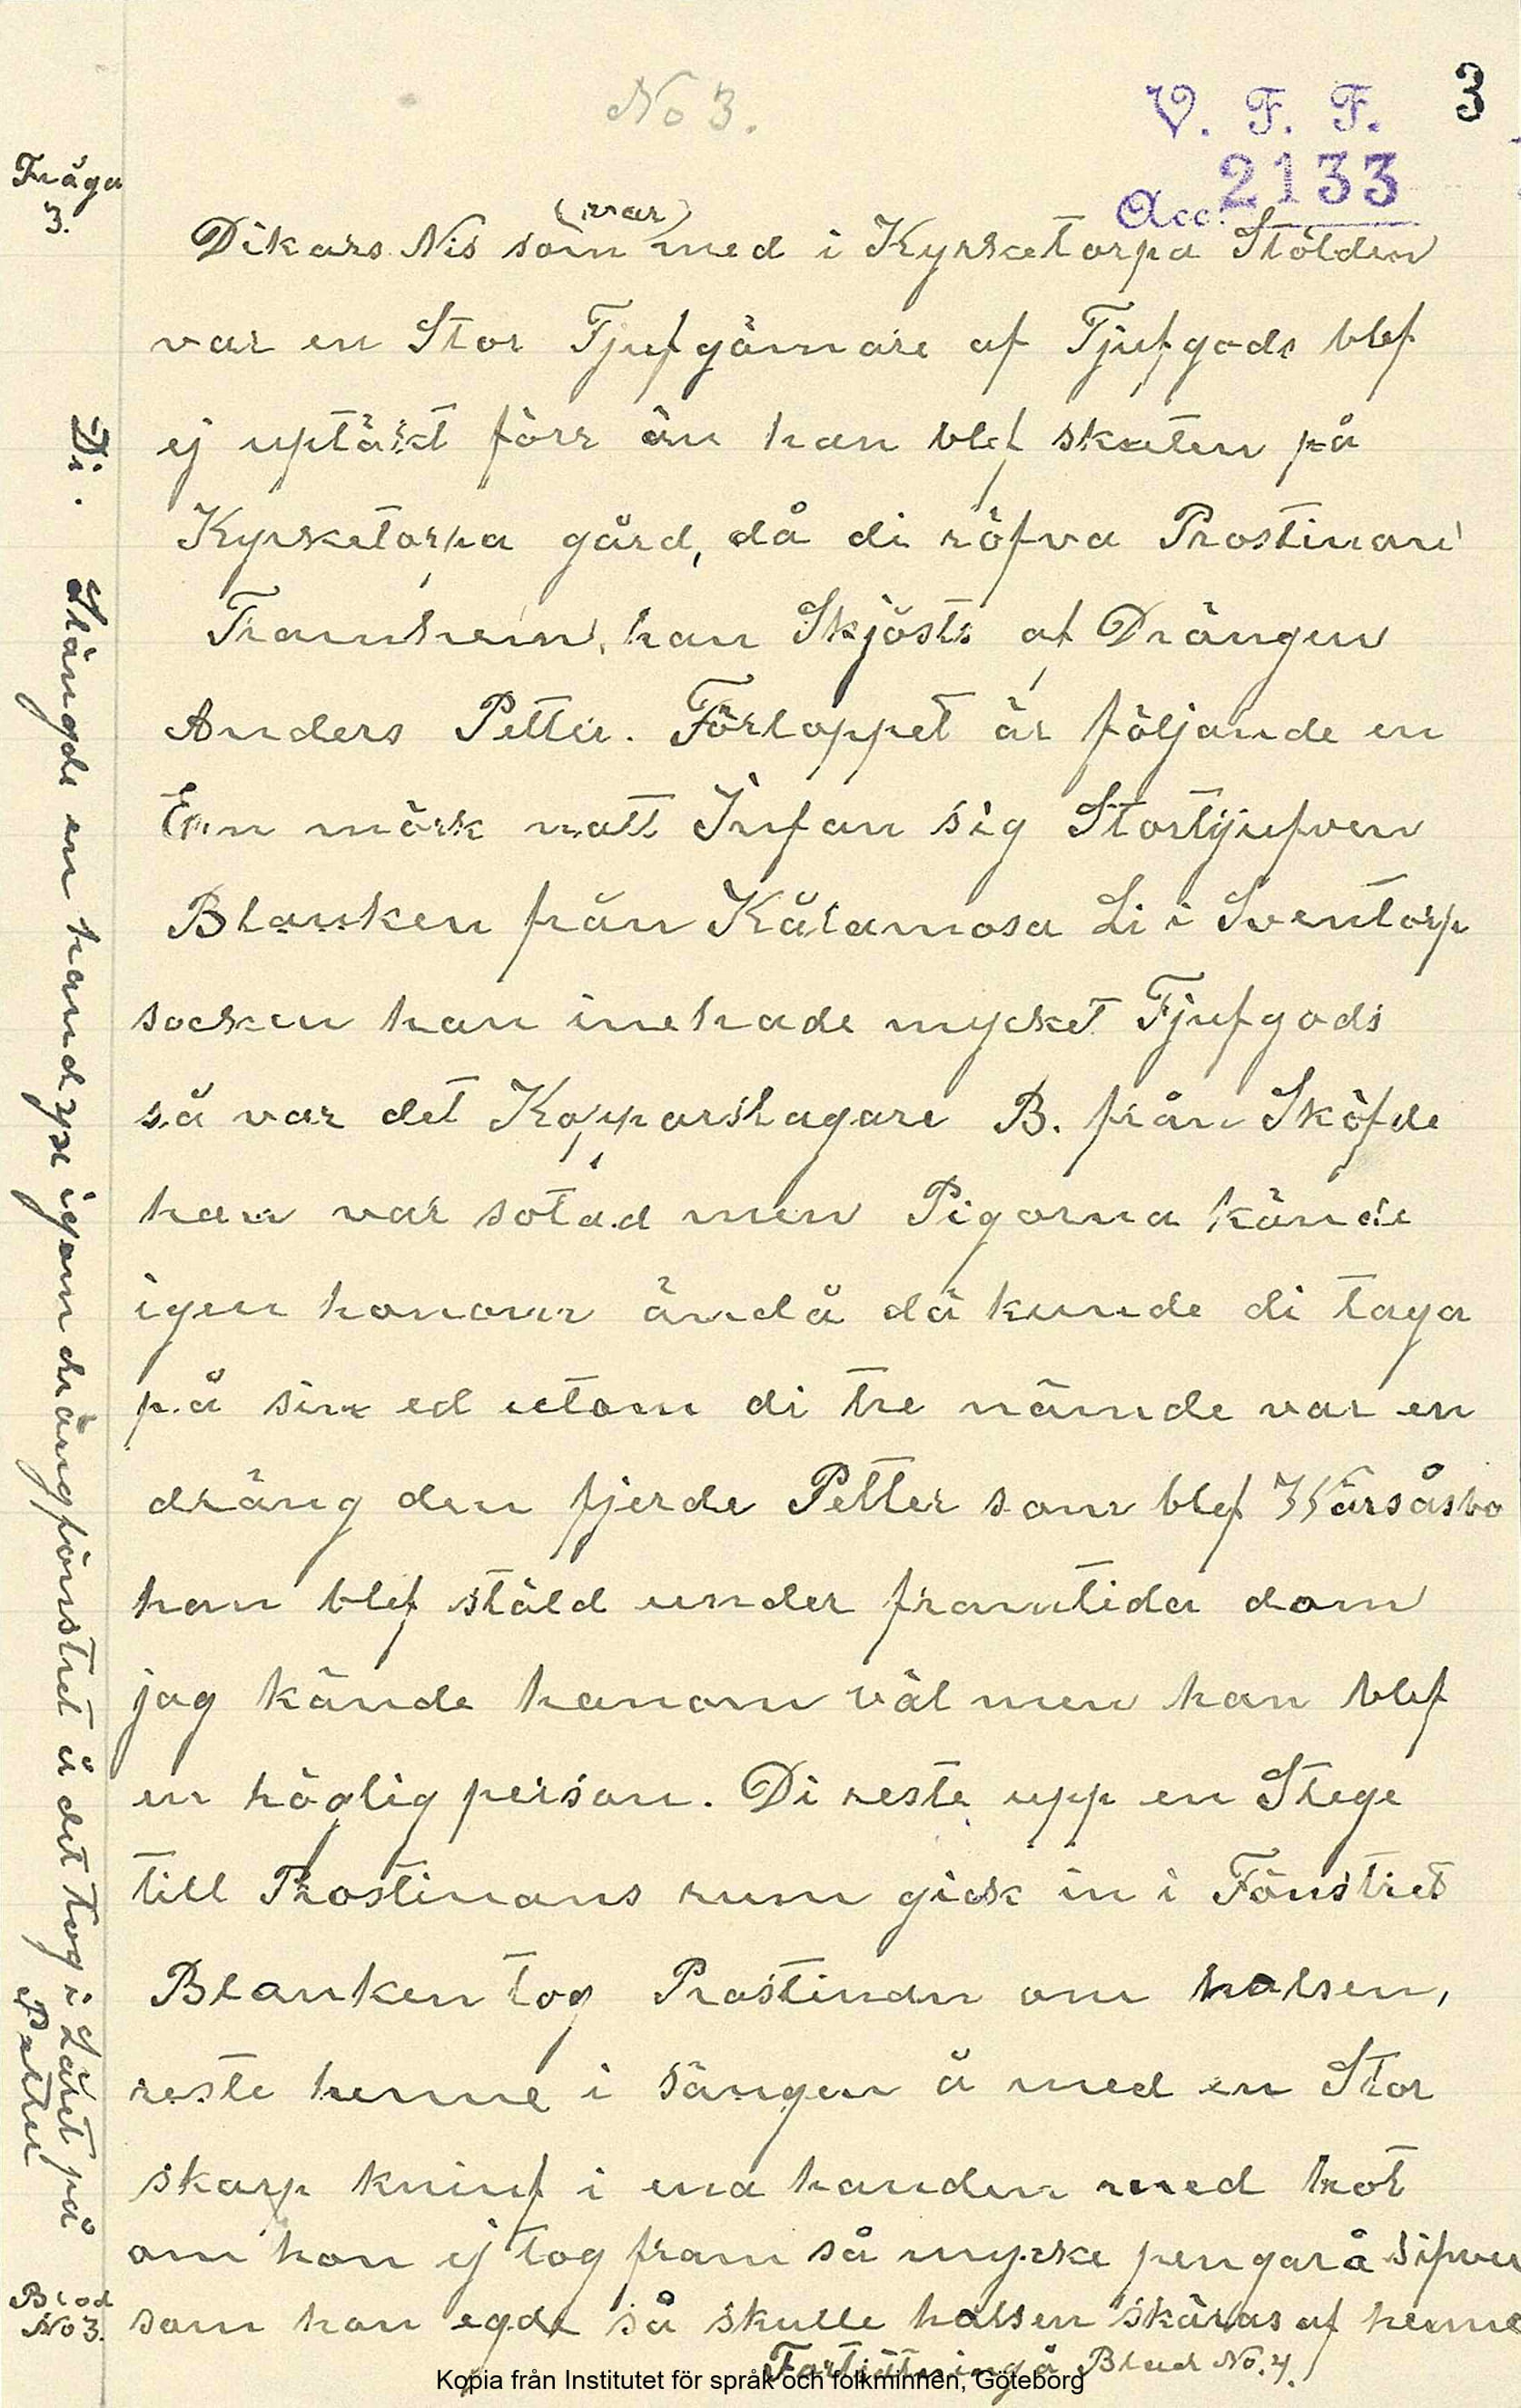 No 3.
V. F. F.
3
Acc. 2133
Fråga
3.
(var)
Dikars Nis som med i Kyrketorpa Stölden
var en Stor Tjufgömare af Tjufgods blef
ej uptäkt förr än han blef skuten på
Kyrketorpa gård, då di röfva Prostinan
han Skjösts af Drängen
Anders Petter. Förloppet är följande en
En mörk natt Infan sig Stortjufven
Blanken från Kålamosa Li i Sventorp
socken han inehade mycket Tjufgods
så var det Kopparslagare B. från Sköfde
han var sotad men Pigorna kände
igen honom ändå då kunde di taga
på sin ed utom di tre nämde var en
dräng den fjerde Petter som blef Wårsåsbo
han blef stäld under framtida dom
jag kände honom väl men han blef
en höglig person. Di reste upp en Stege
till Prostinans rum gick in i Fönstret
Blanken tog Prostinan om halsen,
reste henne i sängen å med en Stor
skarp kninf i ena handen med hot
om hon ej tog fram så mycke pengar å silfver
som hon egde så skulle halsen skäras af henne
Fortsättning å Blad No. 4.
Di. Slängde en handyxe igom drängfönstret å det tog i Låret på
Petter
Blad
No 3.
Kopia från Institutet för språk och folkminnen, Göteborg